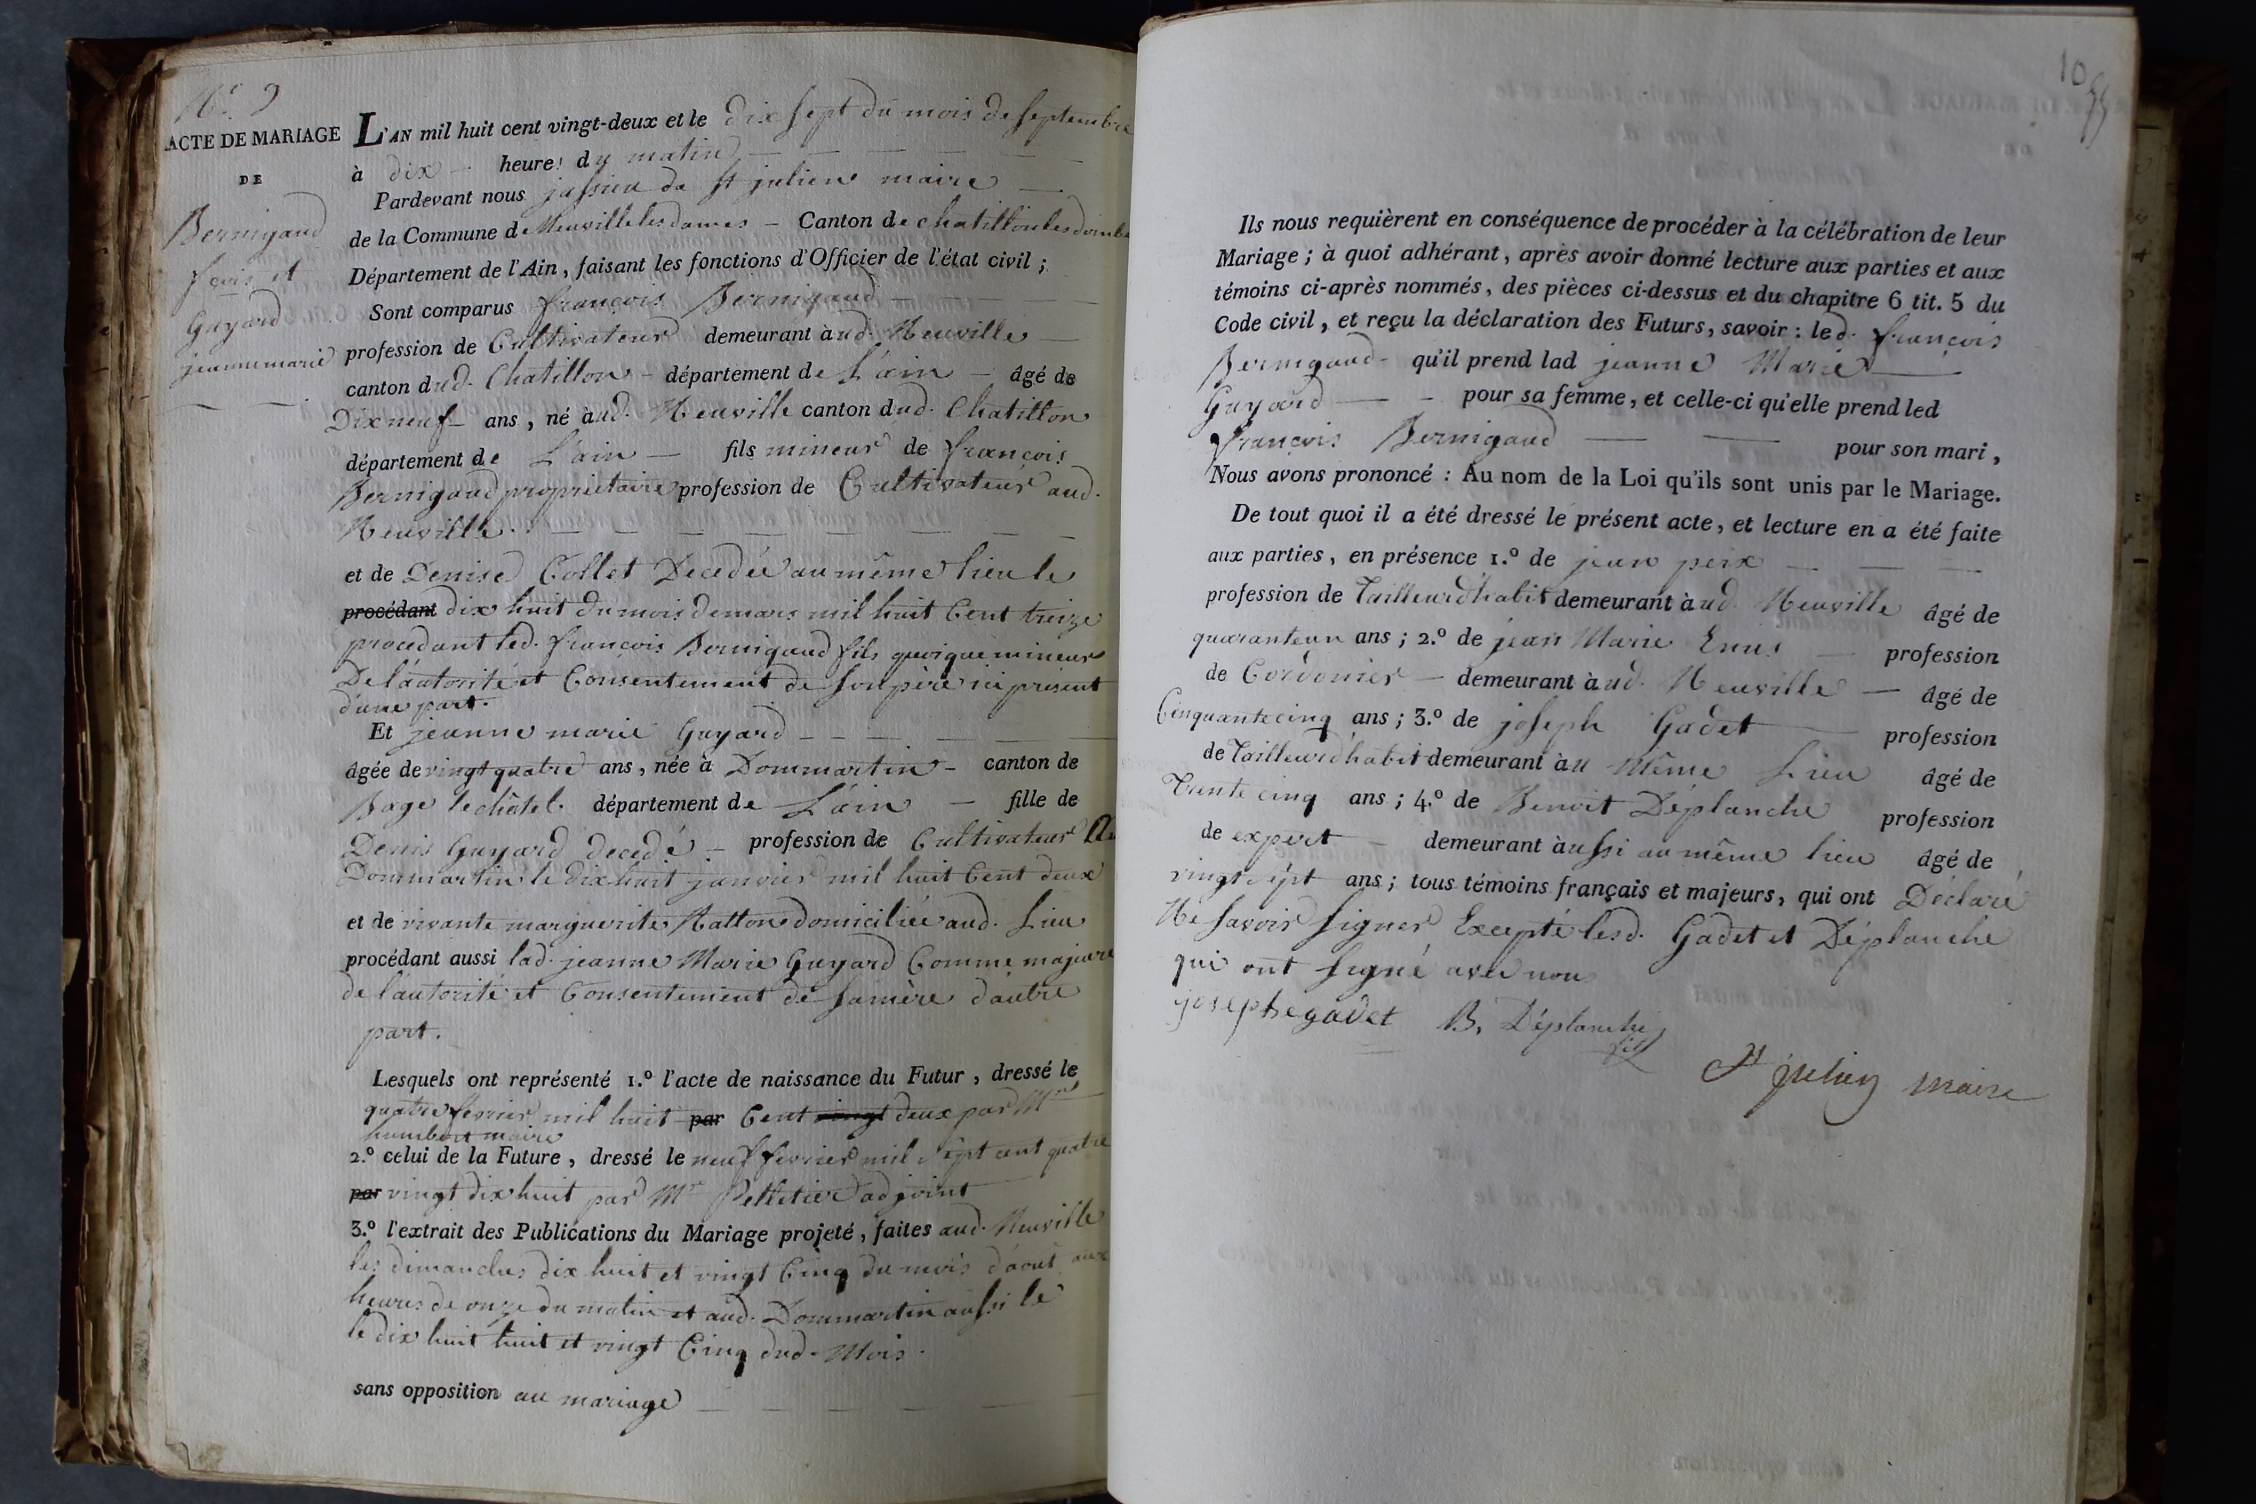 N.º 9
ACTE DE MARIAGE
DE
Bernigaud
fçois et
Guyard
jeanne marie
L'AN mil huit cent vingt-deux et le dix sept du mois de septembre
à dix heures du matin
Pardevant nous jussieu de st julien maire
de la Commune de Neuville les dames Canton de chatillon les dombes
Département de l'Ain, faisant les fonctions d'Officier de l'état civil ;
Sont comparus françois Bernigaud
profession de Cultivateur demeurant à ud. Neuville
canton dud. Chatillon département de L'ain âgé de
Dix neuf ans, né à ud. Neuville canton dud. Chatillon
département de L'ain fils mineur de françois
Bernigaud propriétaire profession de Cultivateur aud.
Neuville.
et de Denise Collet Decedée au même lieu le
procédant dix huit du mois de mars mil huit Cent treize
procedant led. françois Bernigaud fils quoique mineur
De l'autorité et Consentement de son père ici present
d'une part.
Et jeanne marie Guyard
âgée de vingt quatre ans, née à Dommartin canton de
Bage le châtel département de L'ain fille de
Denis Guyard decedé profession de Cultivateur A
Dommartin le dix huit janvier mil huit Cent deux
et de vivante marguerite Natton domiciliée aud. Lieu
procédant aussi lad. jeanne Marie Guyard Comme majeure
de l'autorité et Consentement de sa mère d'autre
part.
Lesquels ont représenté 1.º l'acte de naissance du Futur, dressé le
quatre fevrier mil huit par Cent vingt deux par Mr
humbert maire
2.º celui de la Future, dressé le neuf fevrier mil sept cent quatre
par vingt dix huit par Mr Pelletier adjoint
3.º l'extrait des Publications du Mariage projeté, faites aud. Neuville
les dimanches dix huit et vingt Cinq du mois d'aout aux
heures de onze du matin et aud. Dommartin aussi le
le dix huit huit et vingt Cinq dud. Mois.
sans opposition au mariage
10
Ils nous requièrent en conséquence de procéder à la célébration de leur
Mariage ; à quoi adhérant, après avoir donné lecture aux parties et aux
témoins ci-après nommés, des pièces ci-dessus et du chapitre 6 tit. 5 du
Code civil, et reçu la déclaration des Futurs, savoir : le d. françois
Bernigaud qu'il prend lad jeanne Marie
Guyard pour sa femme, et celle-ci qu'elle prend led
françois Bernigaud pour son mari,
Nous avons prononcé : Au nom de la Loi qu'ils sont unis par le Mariage.
De tout quoi il a été dressé le présent acte, et lecture en a été faite
aux parties, en présence 1.º de jean perix
profession de Tailleur d'habit demeurant à ud. Neuville âgé de
quarante un ans ; 2.º de jean Marie profession
de Cordonier demeurant à ud. Neuville âgé de
Cinquante cinq ans ; 3.º de joseph Gadet profession
de Tailleur d'habit demeurant àu même Lieu âgé de
Trente cinq ans ; 4.º de Benoit Déplanche profession
de expert demeurant àussi au même lieu âgé de
vingt sept ans ; tous témoins français et majeurs, qui ont Déclaré
Ne savoir signer Excepté lesd. Gadet et Déplanche
qui ont signé avec nous
josephe gadet B. Déplanche
fils
St julien maire